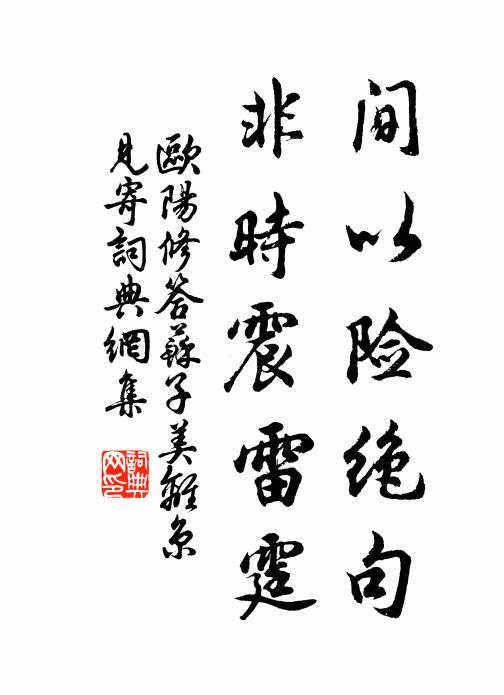 间以险绝句
非時震雷霆
歐陽修答蘇子美離京
見寄詞典網集
詞典网印